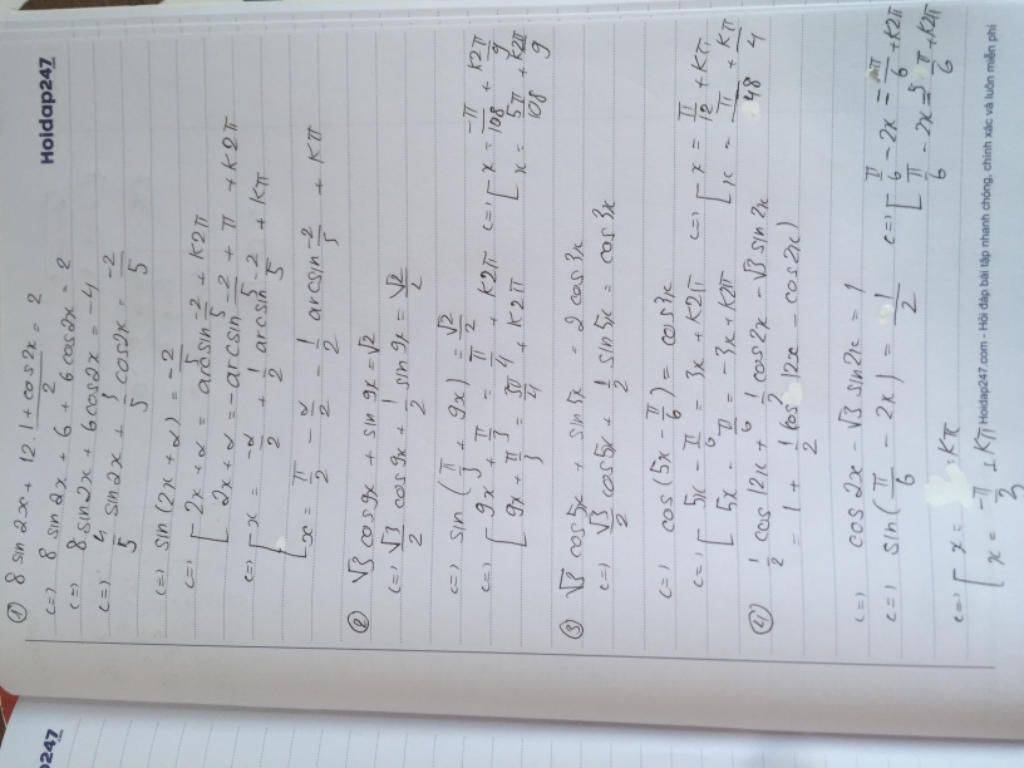 Hoidap247
① 8 sin2x + 12 . (1 + cos2x)/2 = 2
<=> 8 sin2x + 6 + 6 cos2x = 2
<=> 8 sin2x + 6 cos2x = -4
<=> 4/5 sin2x + 3/5 cos2x = -2/5
<=> sin(2x + α) = -2/5
<=> [ 2x + α = arcsin -2/5 + k2π
[ 2x + α = -arcsin -2/5 + π + k2π
<=> [ x = -α/2 + 1/2 arcsin -2/5 + kπ
[ x = π/2 - α/2 - 1/2 arcsin -2/5 + kπ
② √3 cos9x + sin9x = √2
<=> √3/2 cos9x + 1/2 sin9x = √2/2
<=> sin(π/3 + 9x) = √2/2
<=> [ 9x + π/3 = π/4 + k2π <=> [ x = -π/108 + k2π/9
[ 9x + π/3 = 3π/4 + k2π [ x = 5π/108 + k2π/9
③ √3 cos5x + sin5x = 2 cos3x
<=> √3/2 cos5x + 1/2 sin5x = cos3x
<=> cos(5x - π/6) = cos3x
<=> [ 5x - π/6 = 3x + k2π <=> [ x = π/12 + kπ
[ 5x - π/6 = -3x + k2π [ x = π/48 + kπ/4
④ 1/2 cos12x + 1/2 cos2x - √3 sin2x
= 1 + 1/2 (cos12x - cos2x)
<=> cos2x - √3 sin2x = 1
<=> sin(π/6 - 2x) = 1/2 <=> [ π/6 - 2x = π/6 + k2π
[ π/6 - 2x = 5π/6 + k2π
<=> [ x = kπ
[ x = -π/3 + kπ
Hoidap247.com - Hỏi đáp bài tập nhanh chóng, chính xác và luôn miễn phí
247